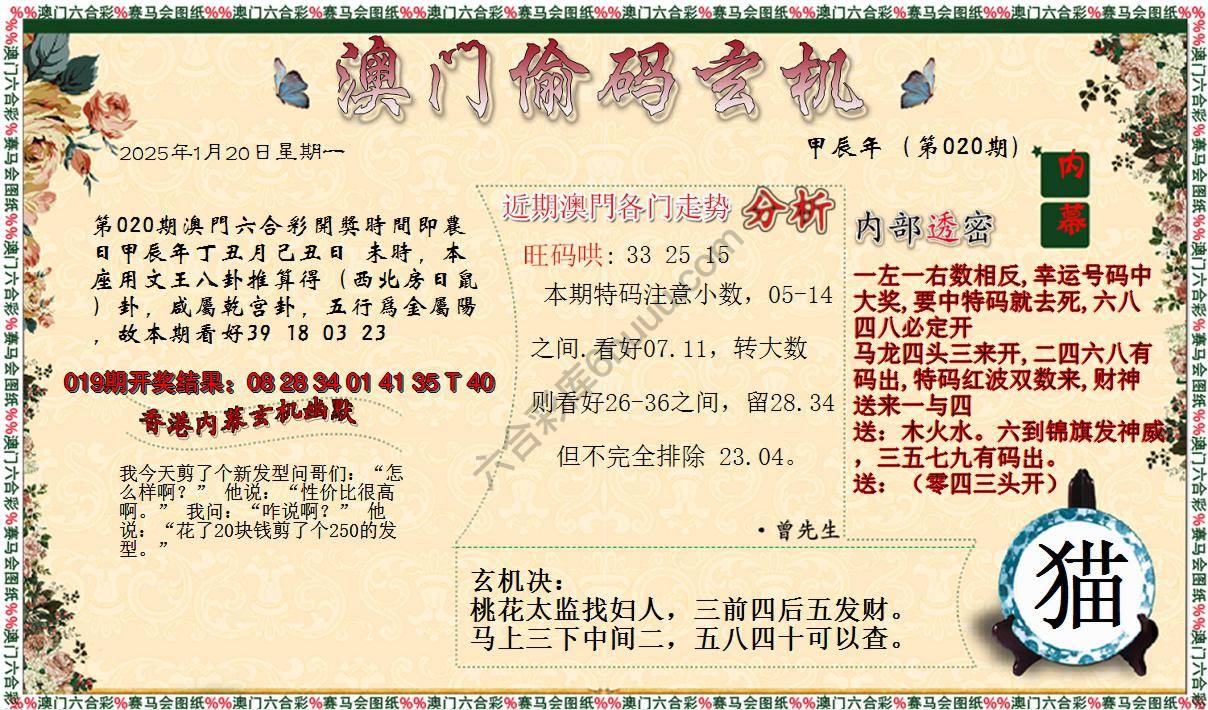 %%澳门六合彩%赛马会图纸%%澳门六合彩%赛马会图纸%%澳门六合彩%赛马会图纸%%澳门六合彩%赛马会图纸%%澳门六合彩%赛马会图纸%%澳门六合彩%赛马会图纸%%
澳门偷码玄机
2025年1月20日星期一
甲辰年（第020期）
内
幕
第020期澳門六合彩開獎時間即農
日甲辰年丁丑月己丑日 未時，本
座用文王八卦推算得（西北房日鼠
）卦，咸屬乾宫卦，五行爲金屬陽
，故本期看好39 18 03 23
019期开奖结果：08 28 34 01 41 35 T 40
香港内幕玄机幽默
我今天剪了个新发型问哥们：“怎
么样啊？” 他说：“性价比很高
啊。” 我问：“咋说啊？” 他
说：“花了20块钱剪了个250的发
型。”
近期澳門各门走势 分析
旺码哄: 33 25 15
本期特码注意小数，05-14
之间.看好07.11，转大数
则看好26-36之间，留28.34
但不完全排除 23.04。
·曾先生
内部透密
一左一右数相反,幸运号码中
大奖,要中特码就去死,六八
四八必定开
马龙四头三来开,二四六八有
码出,特码红波双数来,财神
送来一与四
送：木火水。六到锦旗发神威
，三五七九有码出。
送：（零四三头开）
玄机决：
桃花太监找妇人，三前四后五发财。
马上三下中间二，五八四十可以查。
猫